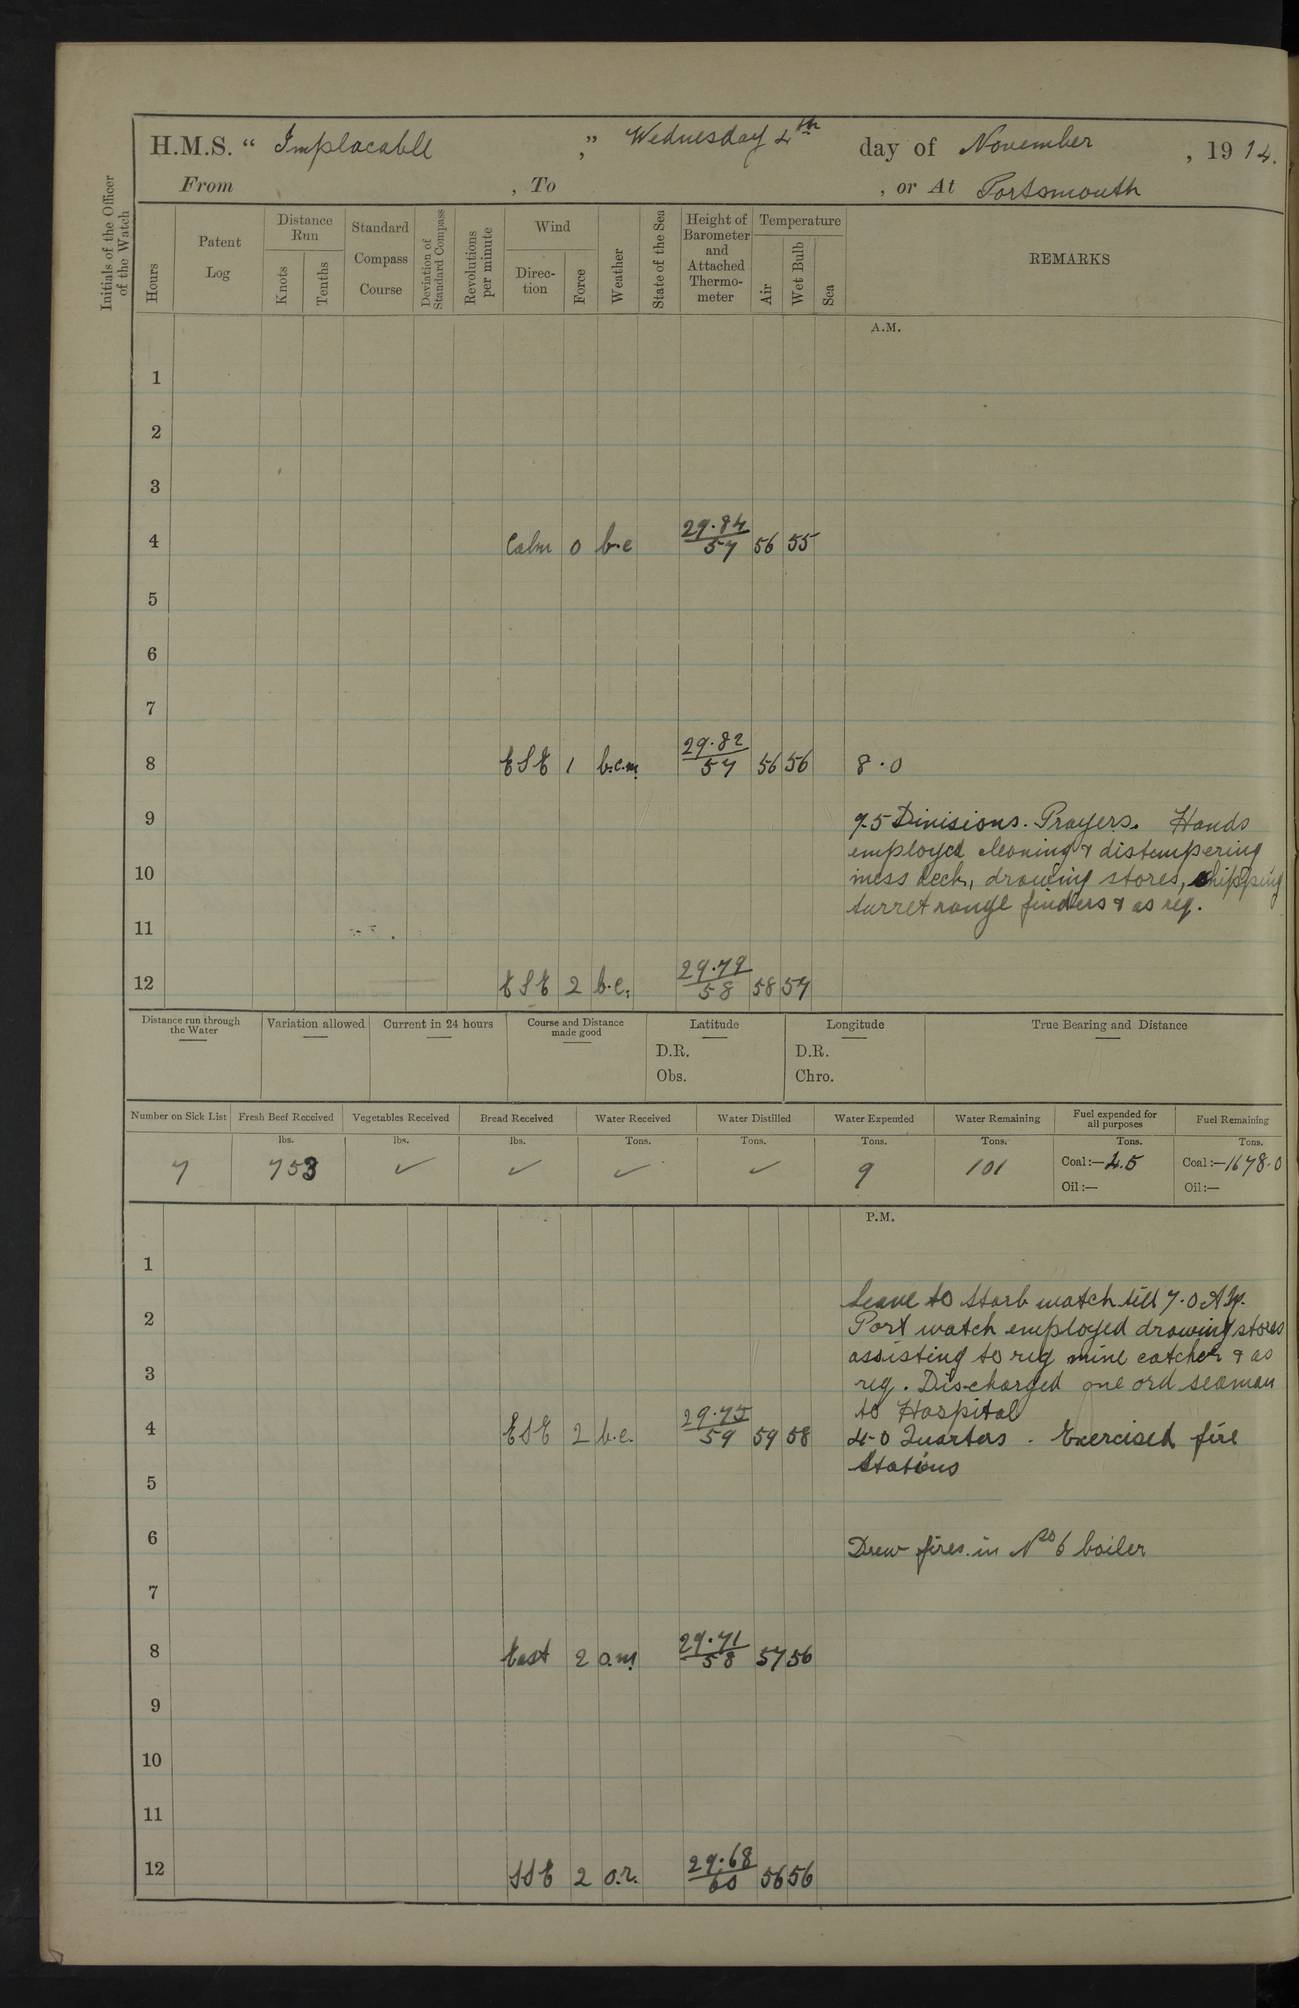 H.M.S. “ Implacable ,” Wednesday 4th day of November , 1914.
From , To , or At Portsmouth
Initials of the Officer of the Watch
Hours
Patent Log
Distance Run
Knots
Tenths
Standard Compass Course
Deviation of Standard Compass
Revolutions per minute
Wind
Direc-tion
Force
Weather
State of the Sea
Height of Barometer and Attached Thermo-meter
Temperature
Air
Wet Bulb
Sea
REMARKS
A.M.
1
2
3
4 Calm 0 b.c 29.84/57 56 55
5
6
7
8 ESE 1 b.c.m. 29.82/57 56 56 8.0
9 9.5 Divisions. Prayers. Hands
employed cleaning & distempering
10 mess deck, drawing stores, shipping
turret range finders & as req.
11
12 ESE 2 b.c. 29.79/58 58 57
Distance run through the Water
Variation allowed
Current in 24 hours
Course and Distance made good
Latitude
D.R.
Obs.
Longitude
D.R.
Chro.
True Bearing and Distance
Number on Sick List
7
Fresh Beef Received
lbs.
753
Vegetables Received
lbs.
✓
Bread Received
lbs.
✓
Water Received
Tons.
✓
Water Distilled
Tons.
✓
Water Expended
Tons.
9
Water Remaining
Tons.
101
Fuel expended for all purposes
Tons.
Coal:—45
Oil:—
Fuel Remaining
Tons.
Coal:—1678.0
Oil:—
P.M.
1
Leave to Starb watch till 7.0 A.M.
2 Port watch employed drawing stores
assisting to rig mine catcher & as
3 req. Discharged one ord seaman
to Hospital
4 ESE 2 b.c. 29.75/59 59 58 4.0 Quarters. Exercised fire
Stations
5
6 Drew fires in No 6 boiler
7
8 East 2 o.m. 29.71/58 57 56
9
10
11
12 SSE 2 o.r. 29.68/60 56 56